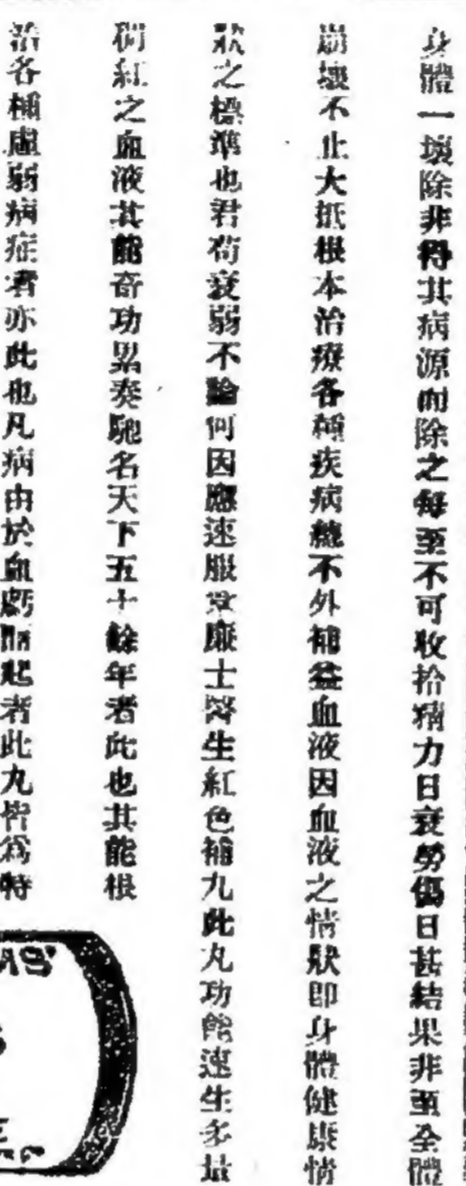 身體一壞除非得其病源而除之每至不可收拾精力日衰勞傷日甚結果非至全體
崩壞不止大抵根本治療各種疾病總不外補益血液因血液之情狀即身體健康情
狀之標準也君苟衰弱不論何因應速服韋廉士醫生紅色補丸此丸功能速生多量
稠紅之血液其能奇功累奏馳名天下五十餘年者此也其能根
治各種虛弱病症者亦此也凡病由於血虧而起者此丸皆爲特
AS'